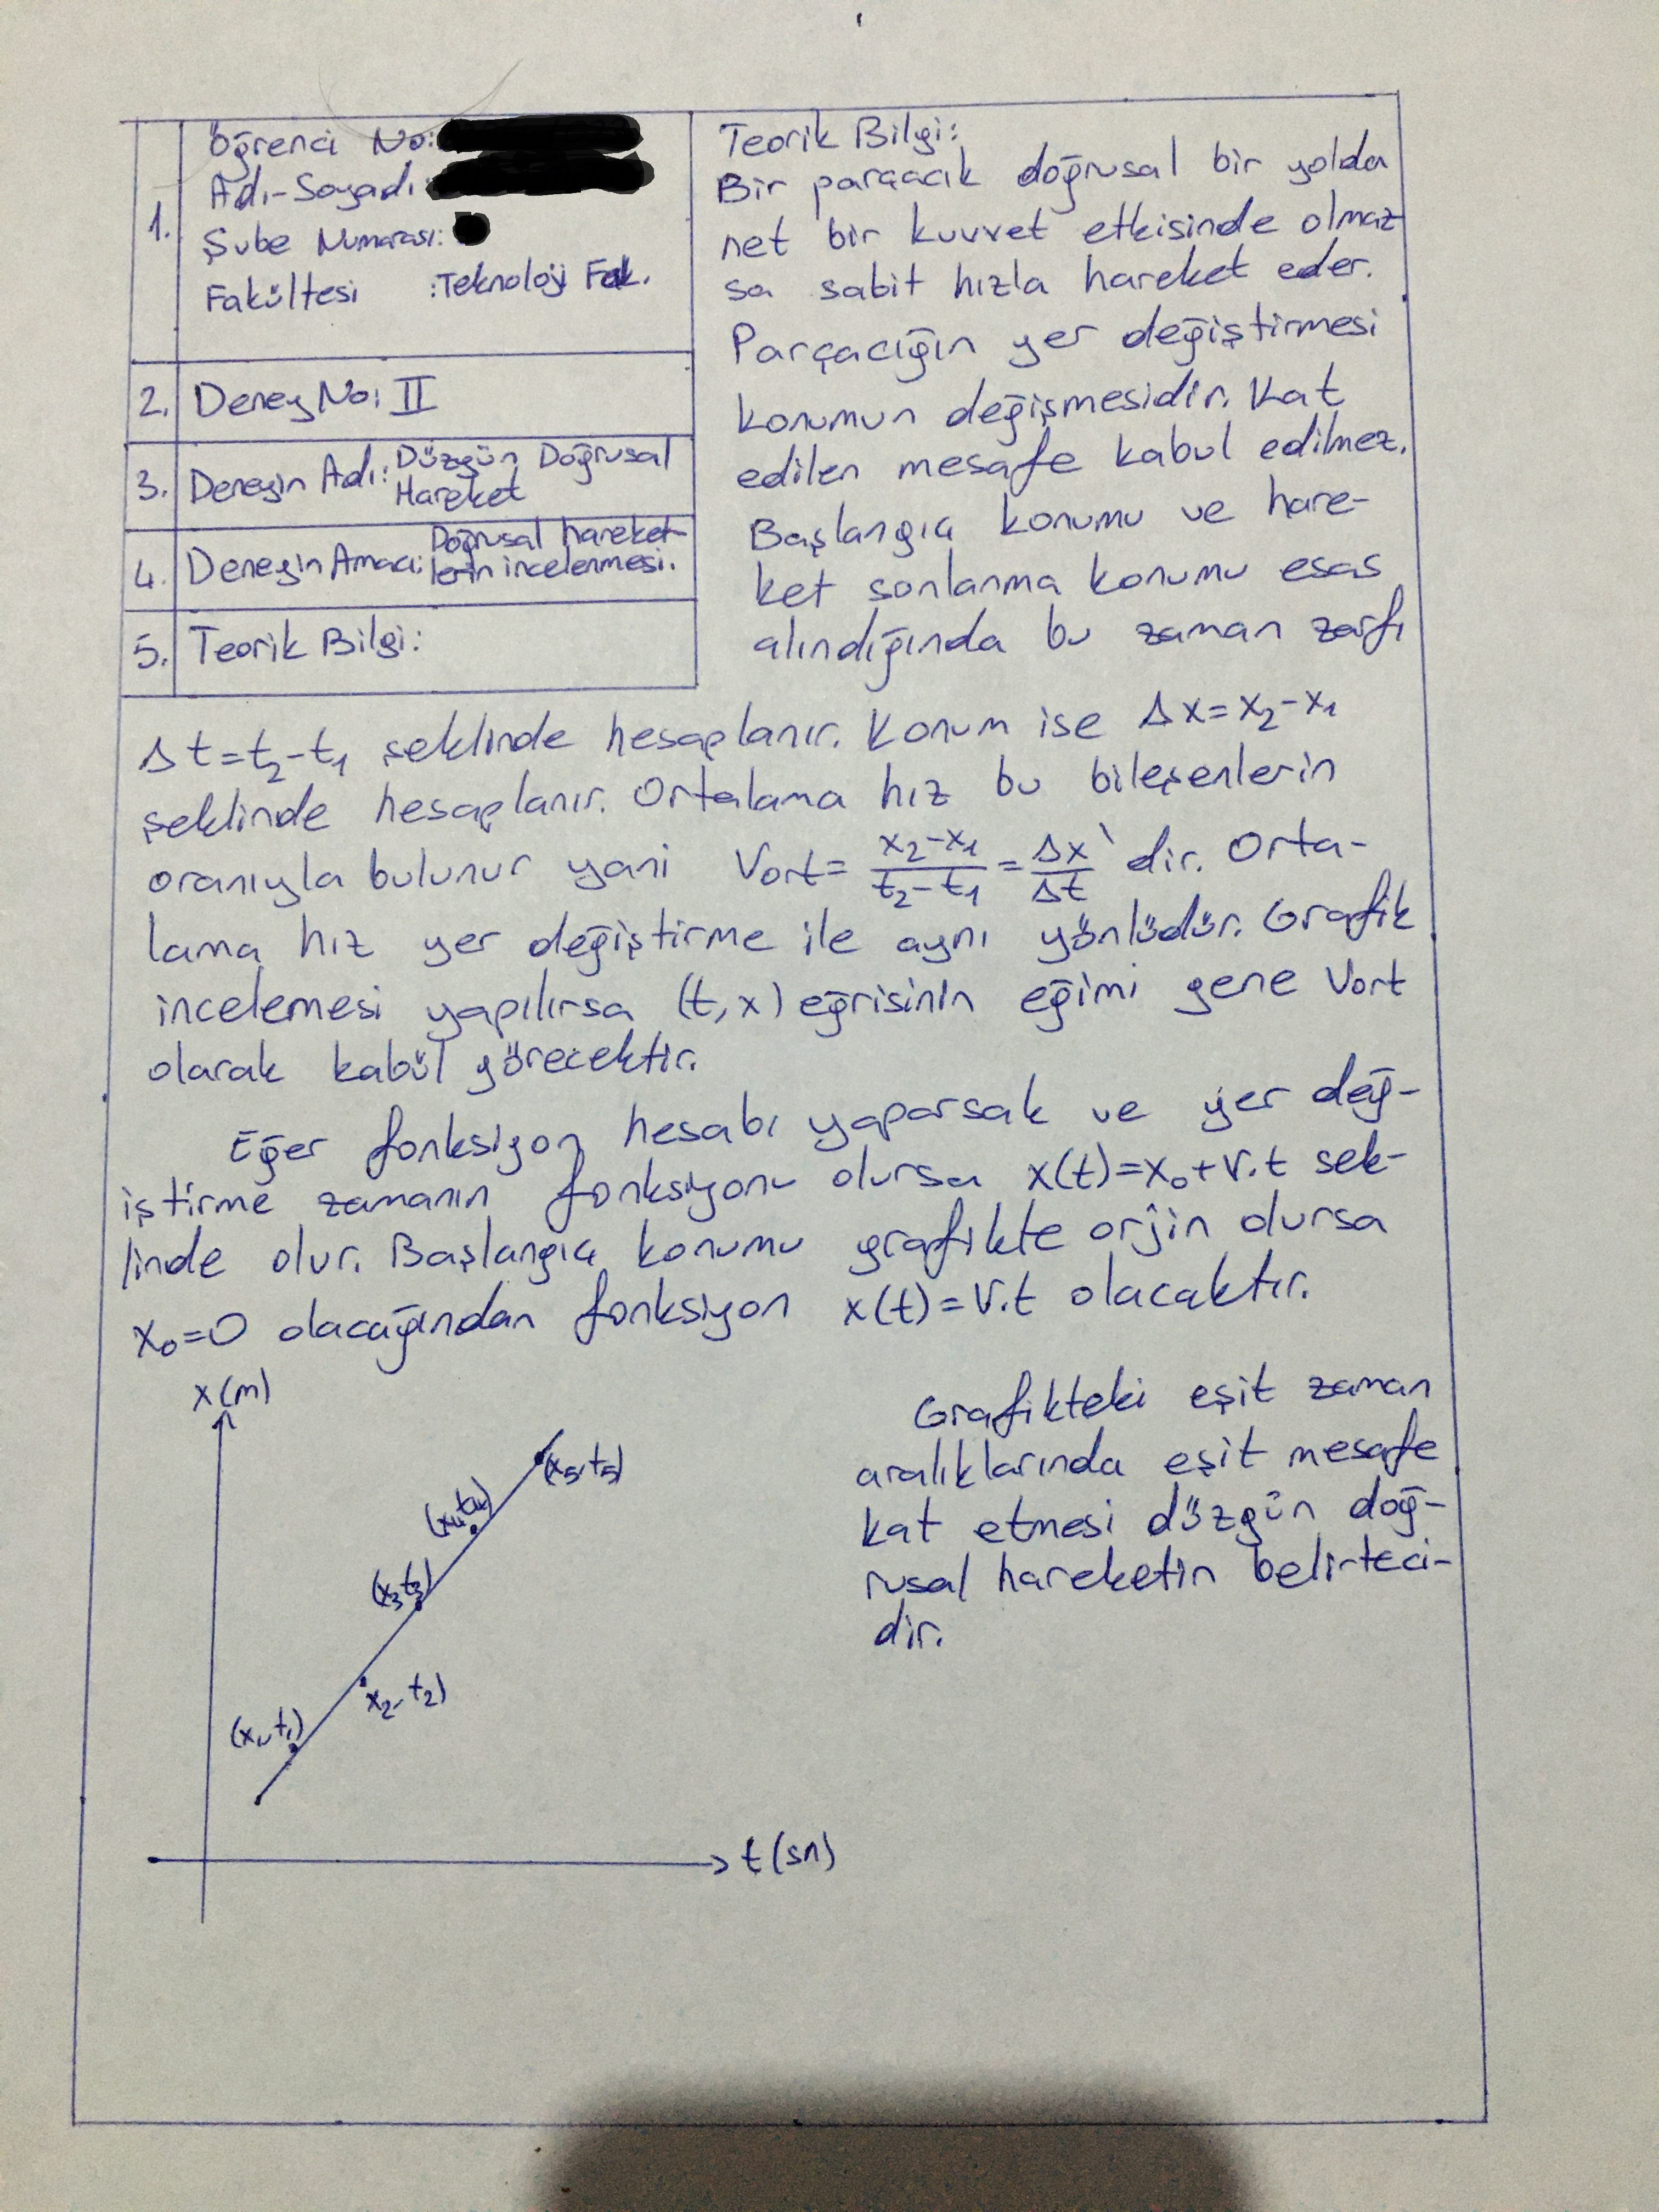 1.
Öğrenci No:
Adı-Soyadı:
Şube Numarası:
Fakültesi :Teknoloji Fak.
2. Deney No: II
3. Deneyin Adı: Düzgün Doğrusal
Hareket
4. Deneyin Amacı: Doğrusal hareket-
lerin incelenmesi.
5. Teorik Bilgi:
Teorik Bilgi:
Bir parçacık doğrusal bir yolda
net bir kuvvet etkisinde olmaz
sa sabit hızla hareket eder.
Parçacığın yer değiştirmesi
konumun değişmesidir. Kat
edilen mesafe kabul edilmez.
Başlangıç konumu ve hare-
ket sonlanma konumu esas
alındığında bu zaman zarfı
Δt=t₂-t₁ şeklinde hesaplanır. Konum ise Δx=x₂-x₁
şeklinde hesaplanır. Ortalama hız bu bileşenlerin
oranıyla bulunur yani Vort= x₂-x₁/t₂-t₁ = Δx/Δt 'dir. Orta-
lama hız yer değiştirme ile aynı yönlüdür. Grafik
incelemesi yapılırsa (t,x) eğrisinin eğimi gene Vort
olarak kabül görecektir.
Eğer fonksiyon hesabı yaparsak ve yer değ-
iştirme zamanın fonksiyonu olursa x(t)=x₀+V.t sek-
linde olur. Başlangıç konumu grafikte orjin olursa
x₀=0 olacağından fonksiyon x(t)=V.t olacaktır.
x(m)
(x₅,t₅)
(x₄,t₄)
(x₃t₃)
x₂,t₂)
(x₁,t₁)
t(sn)
Grafikteki eşit zaman
aralıklarında eşit mesafe
kat etmesi düzgün doğ-
rusal hareketin belirteci-
dir.